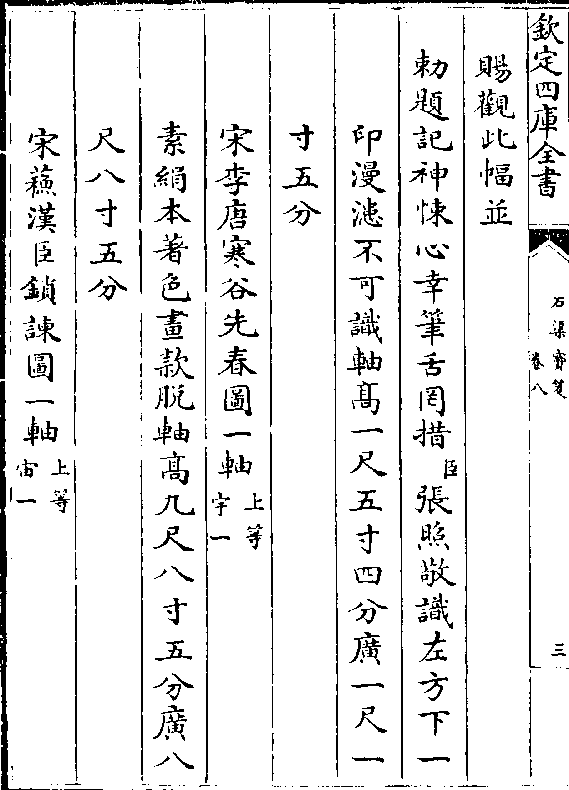 欽定四庫全書
石渠寶笈
卷八
三
賜觀此幅並
勅題記神悚心幸筆舌罔措臣張照敬識左方下一
印漫漶不可識軸髙一尺五寸四分廣一尺一
寸五分
宋李唐寒谷先春圖一軸上等宇一
素絹本著色畫款脱軸髙几尺八寸五分廣八
尺八寸五分
宋蘓漢臣鎖諫圖一軸上等宙一